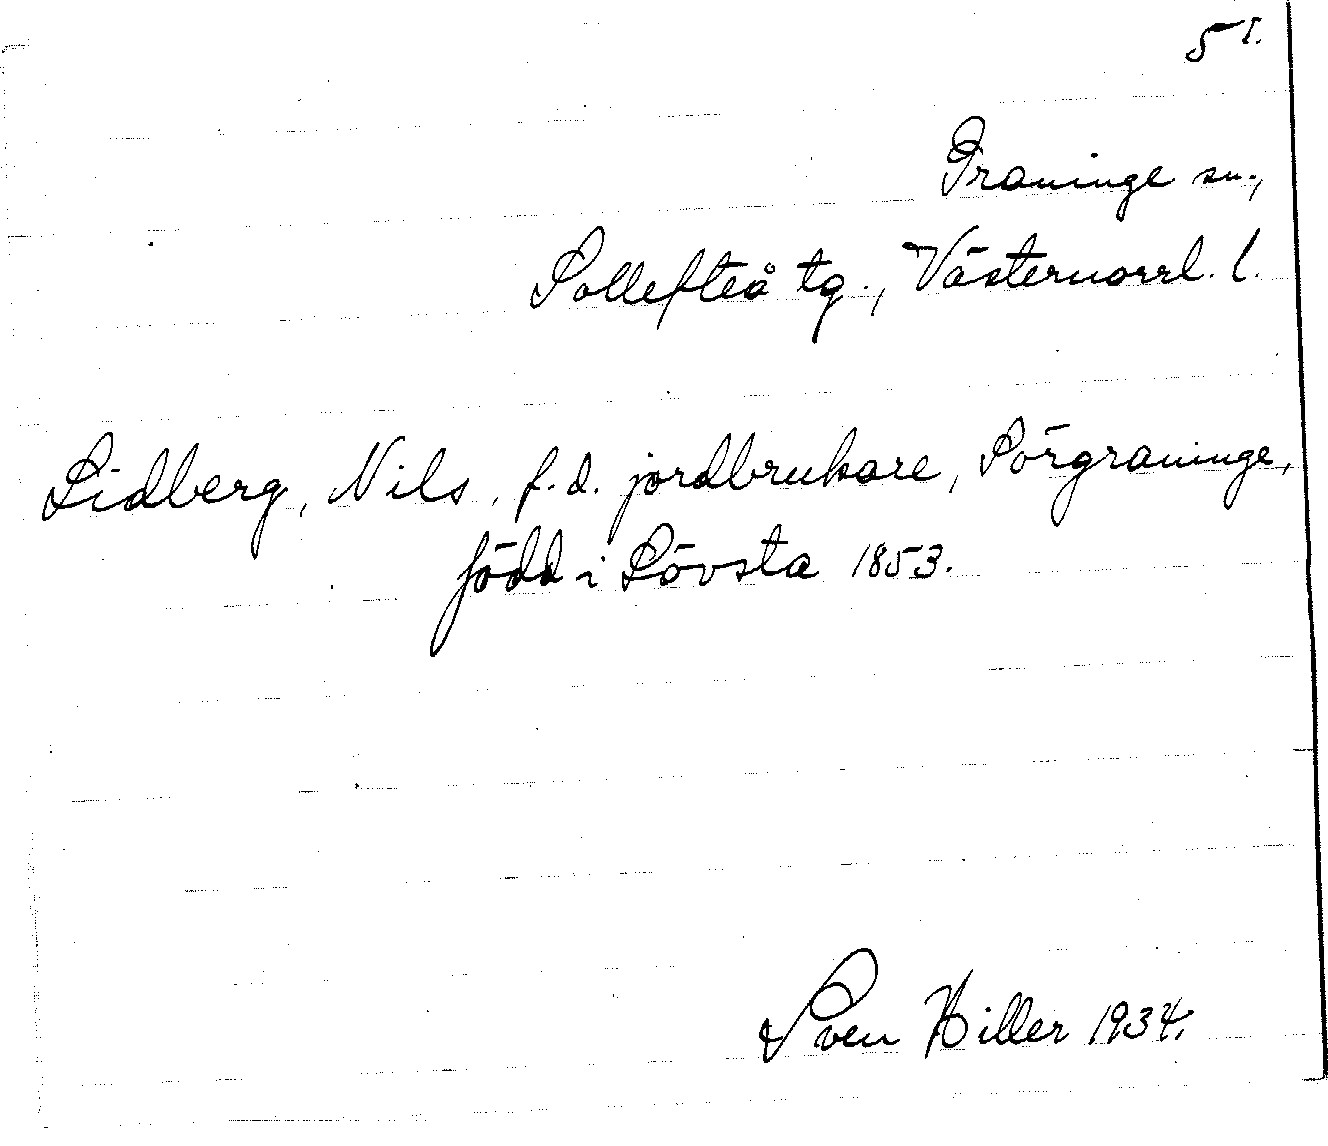 5 I.
Graninge sn.,
Sollefteå tg., Västernorrl. l.
Lidberg, Nils, f.d. jordbrukare, Sörgraninge,
född i Lövsta 1853.
Sven Hiller 1934.